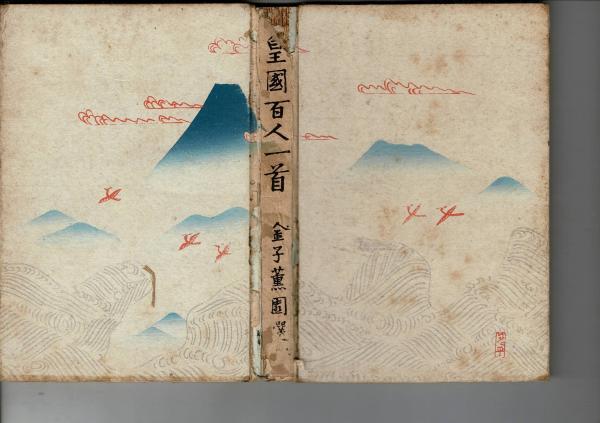 皇國百人一首
金子薫園選